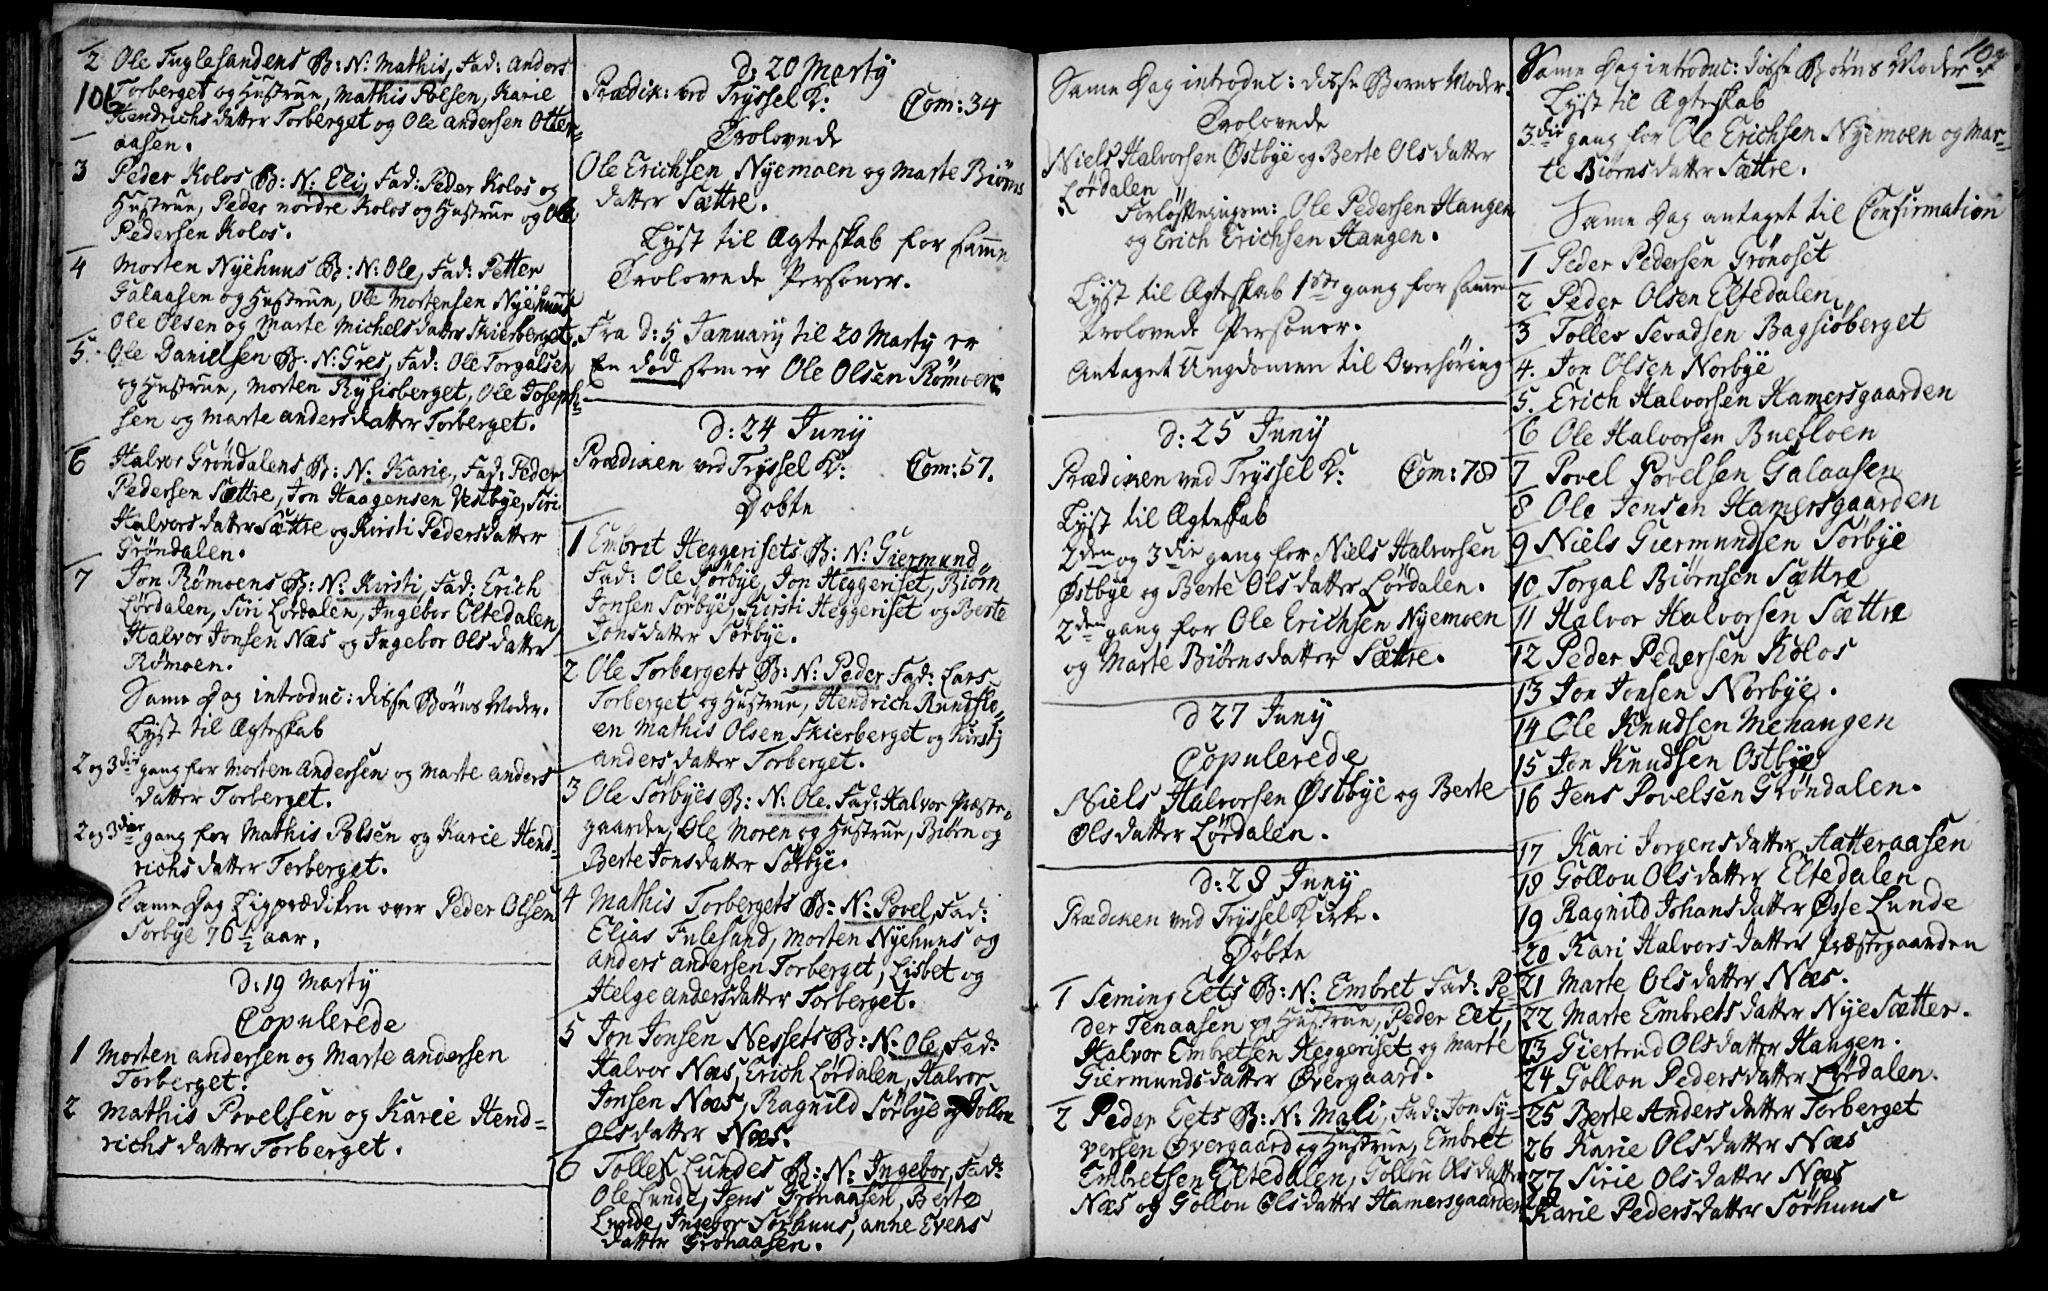 106
2 Ole Fuglesandens B: N: Mathis, Fad: Anders
Torberget og Hustrue, Mathis Polsen, Karie
Hendrichsdatter Torberget og Ole Andersen Otter-
aasen.
3 Peder Kolos B: N: Eli, Fad: Peder Kolos og
Hustrue, Peder nordre Kolos og Hustrue og Ole
Pedersen Kolos.
4 Morten Nyehuus B: N: Ole, Fad: Petter
Galaasen og Hustrue, Ole Mortensen Nyehuus
Ole Olsen og Marte Michelsdatter Skierberget.
5 Ole Danielsen B: N: Gres, Fad: Ole Torgalsen
og Hustrue, Morten Rysisberget, Ole Joseph-
sen og Marte Andersdatter Torberget.
6 Halvor Grøndalens B: N: Karie, Fad: Peder
Pedersen Sættre, Jon Haagensen Vestbye, Siri
Halvorsdatter Sættre og Kirsti Pedersdatter
Grøndalen.
7 Jon Rømoens B: N: Kirsti, Fad: Erich
Lørdalen, Siri Lørdalen, Ingebor Eltedalen,
Halvor Jonsen Næs og Ingebor Olsdatter
Rømoen.
Same Dag introduc: disse Børns Møder.
Lyst til Ægteskab
2 og 3die gang for Morten Andersen og Marte Anders
datter Torberget.
2 og 3die gang for Mathis Polsen og Karie Hend-
richsdatter Torberget.
Same Dag Ligprædiken over Peder Olsen
Sørbye 76 1/2 aar.
D: 19 Martij
Copulerede
1 Morten Andersen og Marte Andersen
Torberget.
2 Mathis Povelsen og Karie Hend-
richsdatter Torberget.
D: 20 Martij
Prædik: ved Tryssel K: Com: 34
Trolovede
Ole Erichsen Nyemoen og Marte Biørns
datter Sættre.
Lyst til Ægteskab for samme
Trolovede Personer.
Fra D: 5 Januarij til 20 Martij er
En død som er Ole Olsen Rømoen
D: 24 Junij
Prædiken ved Tryssel K: Com: 57.
Døbte
1 Embret Heggerisets B: N: Giermund
Fad: Ole Sørbye, Jon Heggeriset, Biørn
Jonsen Sørbye, Kirsti Heggeriset og Berte
Jonsdatter Sørbye.
2 Ole Torbergets B: N: Peder Fad: Lars
Torberget og Hustrue, Hendrich Rundflo-
en Mathis Olsen Skierberget og Kirstj
Andersdatter Torberget.
3 Ole Sørbyes B: N: Ole. Fad: Halvor Præste-
gaarden, Ole Moren og Hustrue, Biørn og
Berte Jonsdatter Sørbye.
4 Mathis Torbergets B: N: Povel, Fad:
Elias Fulesand, Morten Nyehuus og
Anders Andersen Torberget, Lisbet og
Helge Andersdatter Torberget.
5 Jon Jonsen Nessets B: N: Ole, Fad:
Halvor Næs, Erich Lørdalen, Halvor
Jonsen Næs, Ragnild Sørbye og Gollou
Olsdatter Næs.
6 Tolles Lundes B: N: Ingebor, Fad:
Ole Lunde, Jens Grønaasen, Berte
Lunde, Ingebor Sørhuus, Anne Evens
datter Grønaasen.
Same Dag introduc: disse Børns Møder.
Trolovede
Niels Halvorsen Østbye og Berte Olsdatter
Lørdalen
Forlofteringsm: Ole Pedersen Haugen
og Erich Erichsen Haugen.
Lyst til Ægteskab 1ste gang for samme
trolovede Personer.
Antaget Ungdomen til Overhøring
D: 25 Junij
Prædiken ved Tryssel K: Com: 78
Lyst til Ægteskab
2den og 3die gang for Niels Halvorsen
Østbye og Berte Olsdatter Lørdalen.
2den gang for Ole Erichsen Nyemoen
og Marte Biørnsdatter Sættre.
D 27 Junij
Copulerede
Niels Halvorsen Østbye og Berte
Olsdatter Lørdalen.
D: 28 Junij
Prædiken ved Tryssel Kirke.
Døbte
1 Seming Eets B: N: Embret Fad: Pe-
der Tenaasen og Hustrue, Peder Eet,
Halvor Embretsen Heggeriset og Marte
Giermundsdatter Øvergaard.
2 Peder Eets B: N: Mali, Fad: Jon Sy-
versen Øvergaard og Hustrue, Embret
Embretsen Eltedalen, Gollou Olsdatter
Næs og Gollou Olsdatter Hamersgaarden
Same Dag introduc: disse Børns Møder
Lyst til Ægteskab
3die gang for Ole Erichsen Nyemoen og Mar-
te Biørnsdatter Sættre.
Same Dag antaget til Confirmation
1 Peder Pedersen Grønoset
2 Peder Olsen Eltedalen
3 Tolles Sevadsen Bagsiøberget
4. Jon Olsen Norbye
5. Erich Halvorsen Hamersgaarden
6 Ole Halvorsen Buefloen
7 Povel Povelsen Galaasen
8 Ole Jensen Hamersgaarden
9 Niels Giermundsen Sørbye
10 Torgal Biørnsen Sættre
11 Halvor Halvorsen Sættre
12 Peder Pedersen Kolos
13 Jon Jonsen Norbye.
14 Ole Knudsen Mehaugen
15 Jon Knudsen Østbye
16 Jens Povelsen Grøndalen.
17 Kari Jorgensdatter Hatteraasen
18 Gollou Olsdatter Eltedalen
19 Ragnild Johansdatter Øsse Lunde
20 Kari Halvorsdatter Præstegaarden
21 Marte Olsdatter Næs.
22 Marte Embretsdatter Nye Sætter.
23 Giertrud Olsdatter Haugen.
24 Gollou Pedersdatter Lørdalen.
25 Berte Andersdatter Torberget
26 Karie Olsdatter Næs
27 Sirie Olsdatter Næs
28 Karie Pedersdatter Sørhuus